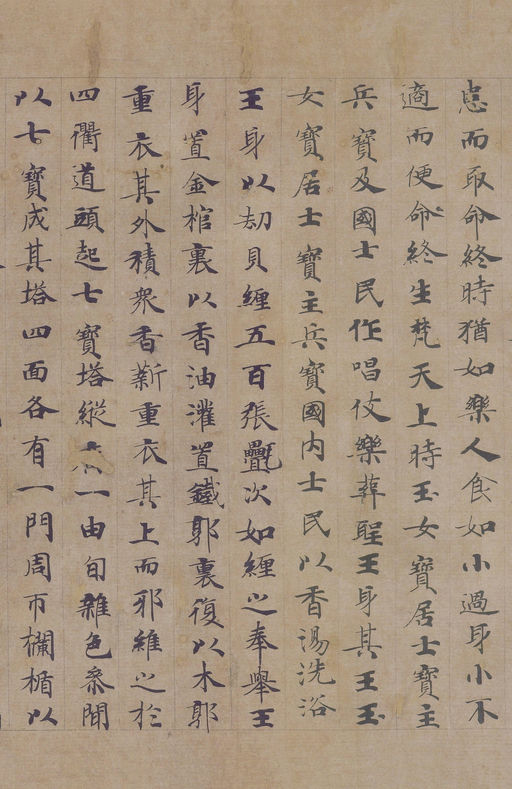 患而取命終時猶如樂人食如小過身小不
適而便命終生梵天上時玉女寶居士寶主
兵寶及國士民作唱伎樂葬聖王身其王玉
女寶居士寶主兵寶國内士民以香湯洗浴
王身以劫貝纏五百張氎次如纏之奉舉王
身置金棺裏以香油灌置鐵郭裏復以木郭
重衣其外積衆香薪重衣其上而邪維之於
四衢道頭起七寶塔縱一由旬雜色參間
以七寶成其塔四面各有一門周帀欄楯以